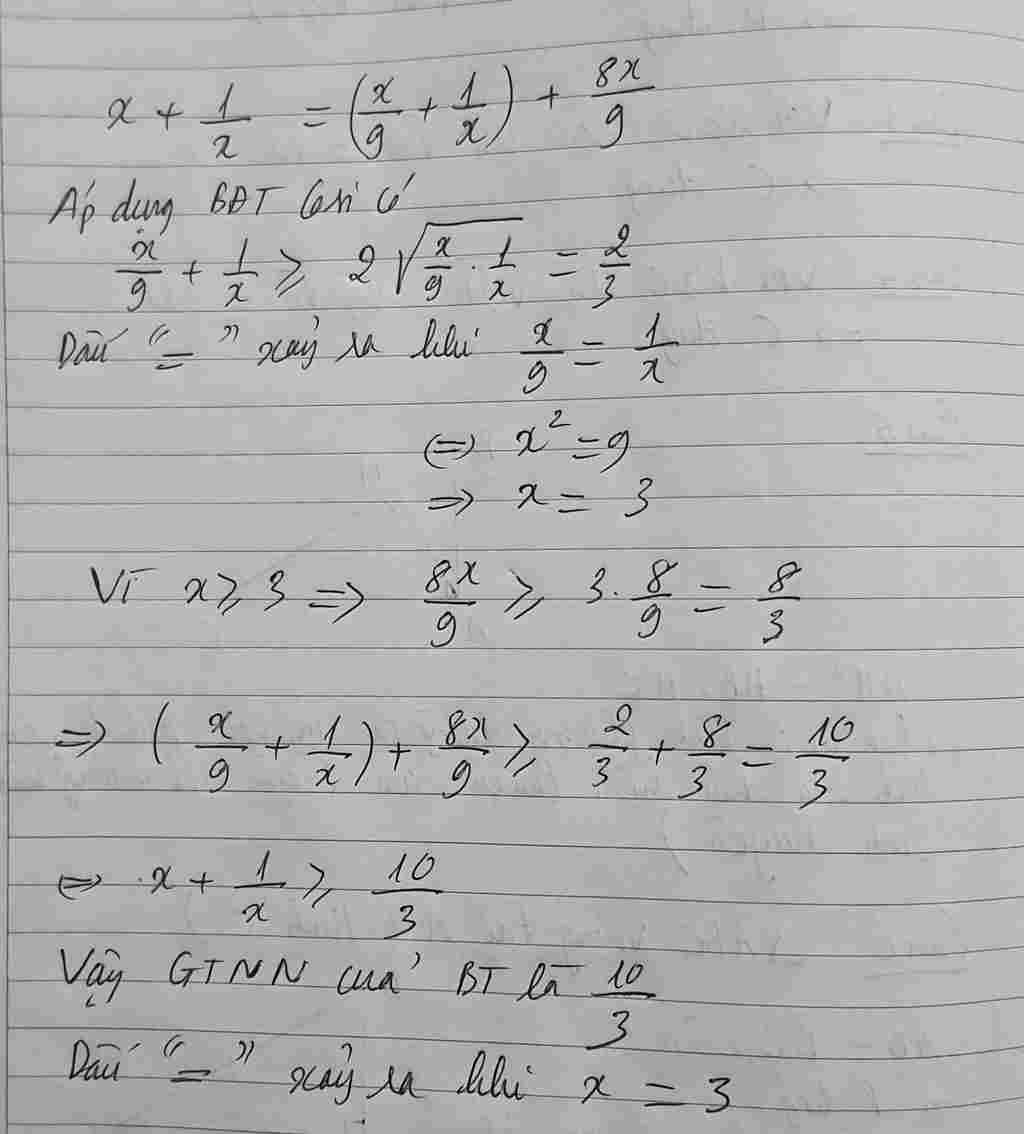 x + 1/x = (x/9 + 1/x) + 8x/9
Áp dụng BĐT Cosi có
x/9 + 1/x ⩾ 2√(x/9 · 1/x) = 2/3
Dấu “=” xảy ra khi x/9 = 1/x
⇔ x² = 9
⇒ x = 3
Vì x ⩾ 3 ⇒ 8x/9 ⩾ 3 · 8/9 = 8/3
⇒ (x/9 + 1/x) + 8x/9 ⩾ 2/3 + 8/3 = 10/3
⇔ x + 1/x ⩾ 10/3
Vậy GTNN của BT là 10/3
Dấu “=” xảy ra khi x = 3